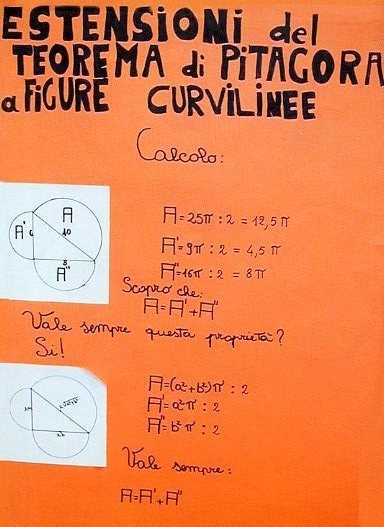 ESTENSIONI del
TEOREMA di PITAGORA
a FIGURE CURVILINEE
Calcolo:
A
A' 6 10
8
A''
A = 25π : 2 = 12,5 π
A' = 9π : 2 = 4,5 π
A'' = 16π : 2 = 8π
Scopro che:
A = A' + A''
Vale sempre questa proprietà?
Si!
A = (a² + b²)π : 2
A' = a²π : 2
A'' = b²π : 2
2a
2b
Vale sempre:
A = A' + A''